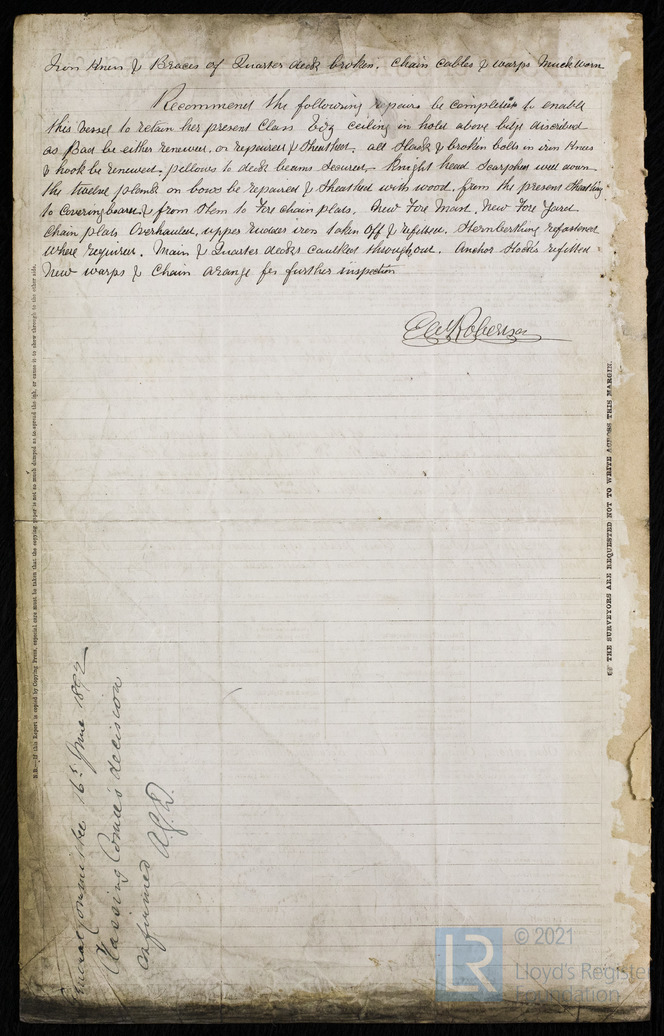 Iron Knees & Braces of Quarter deck broken. Chain Cables & warps Much worn
Recommend the following repairs be completed to enable
this vessel to retain her present Class Viz ceiling in hold above bilge discribed
as Bad be either renewed, or repaired & Sheathed. all slack & broken bolts in iron Knees
& hook be renewed. pillows to deck beams Secured. Knight head Scarphes well down
the twelve plank on bows be repaired & Sheathed with wood, from the present Sheathing
to Covering board & from Stem to Fore chain plats. New Fore Mast, New Fore Yard
Chain plats Overhauled, upper rudder iron taken Off & refitted. Sternberthing refastened
where required. Main & Quarter decks caulked throughout. Anchor Stocks refitted
New warps & Chain arange for further inspection
Robertson
THE SURVEYORS ARE REQUESTED NOT TO WRITE ACROSS THIS MARGIN.
N.B.—If this Report is copied by Copying Press, especial care must be taken that the copying paper is not so much damped as to spread the ink, or cause it to show through to the other side.
General Committee 16th June 1892
Classing Comee's decision
Confirmed A.G.D.
LR © 2021
Lloyd's Register
Foundation